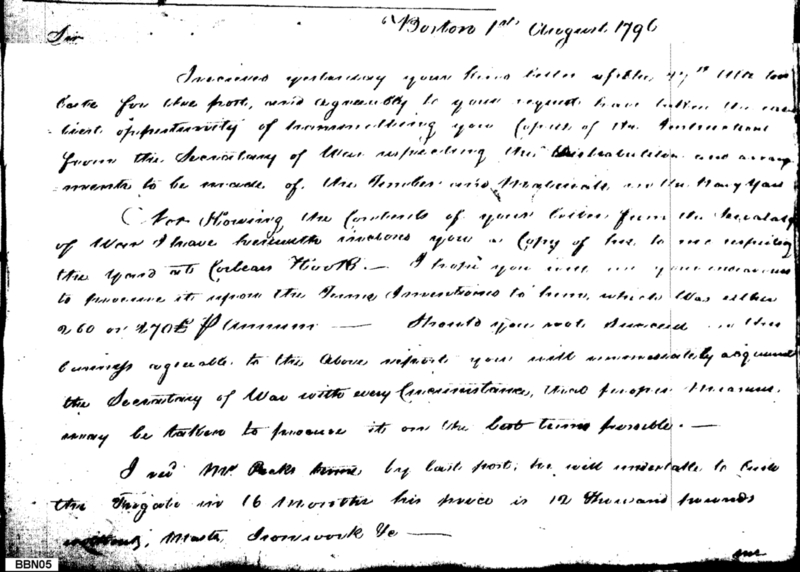 Boston 1st August 1796
Sir
I received yesterday your letter of the 27th Ulto too
late for the post, and agreeably to your request have taken the ear
liest opportunity of transmitting you Copies of the Instructions
from the Secretary of War respecting the distribution and arrang
ments to be made of the Timber and Materials in the Navy Yard
Not Knowing the Contents of your letter from the Secretary
of War I have herewith inclosed you a Copy of his to me respecting
the Yard at Corlears Hook. — I hope you will
to procure it upon the Terms I mentioned to him, which was either
260 or 270£ P Annum — Should you not Succeed in this
business agreeable to the Above report you will immediately acquaint
the Secretary of War with every Circumstance, that proper Measures
may be taken to procure it on the best terms possible. —
I recd Mr. Pecks by last post, he will undertake to build
the Frigate in 16 Months his price is 12 thousand pounds
Masts, Ironwork &c —
BBN05